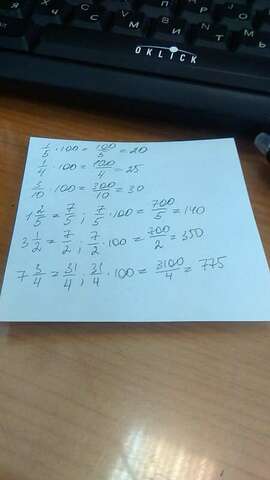 OKLICK
1/5 · 100 = 100/5 = 20
1/4 · 100 = 100/4 = 25
3/10 · 100 = 300/10 = 30
1 2/5 = 7/5 ; 7/5 · 100 = 700/5 = 140
3 1/2 = 7/2 ; 7/2 · 100 = 700/2 = 350
7 3/4 = 31/4 ; 31/4 · 100 = 3100/4 = 775